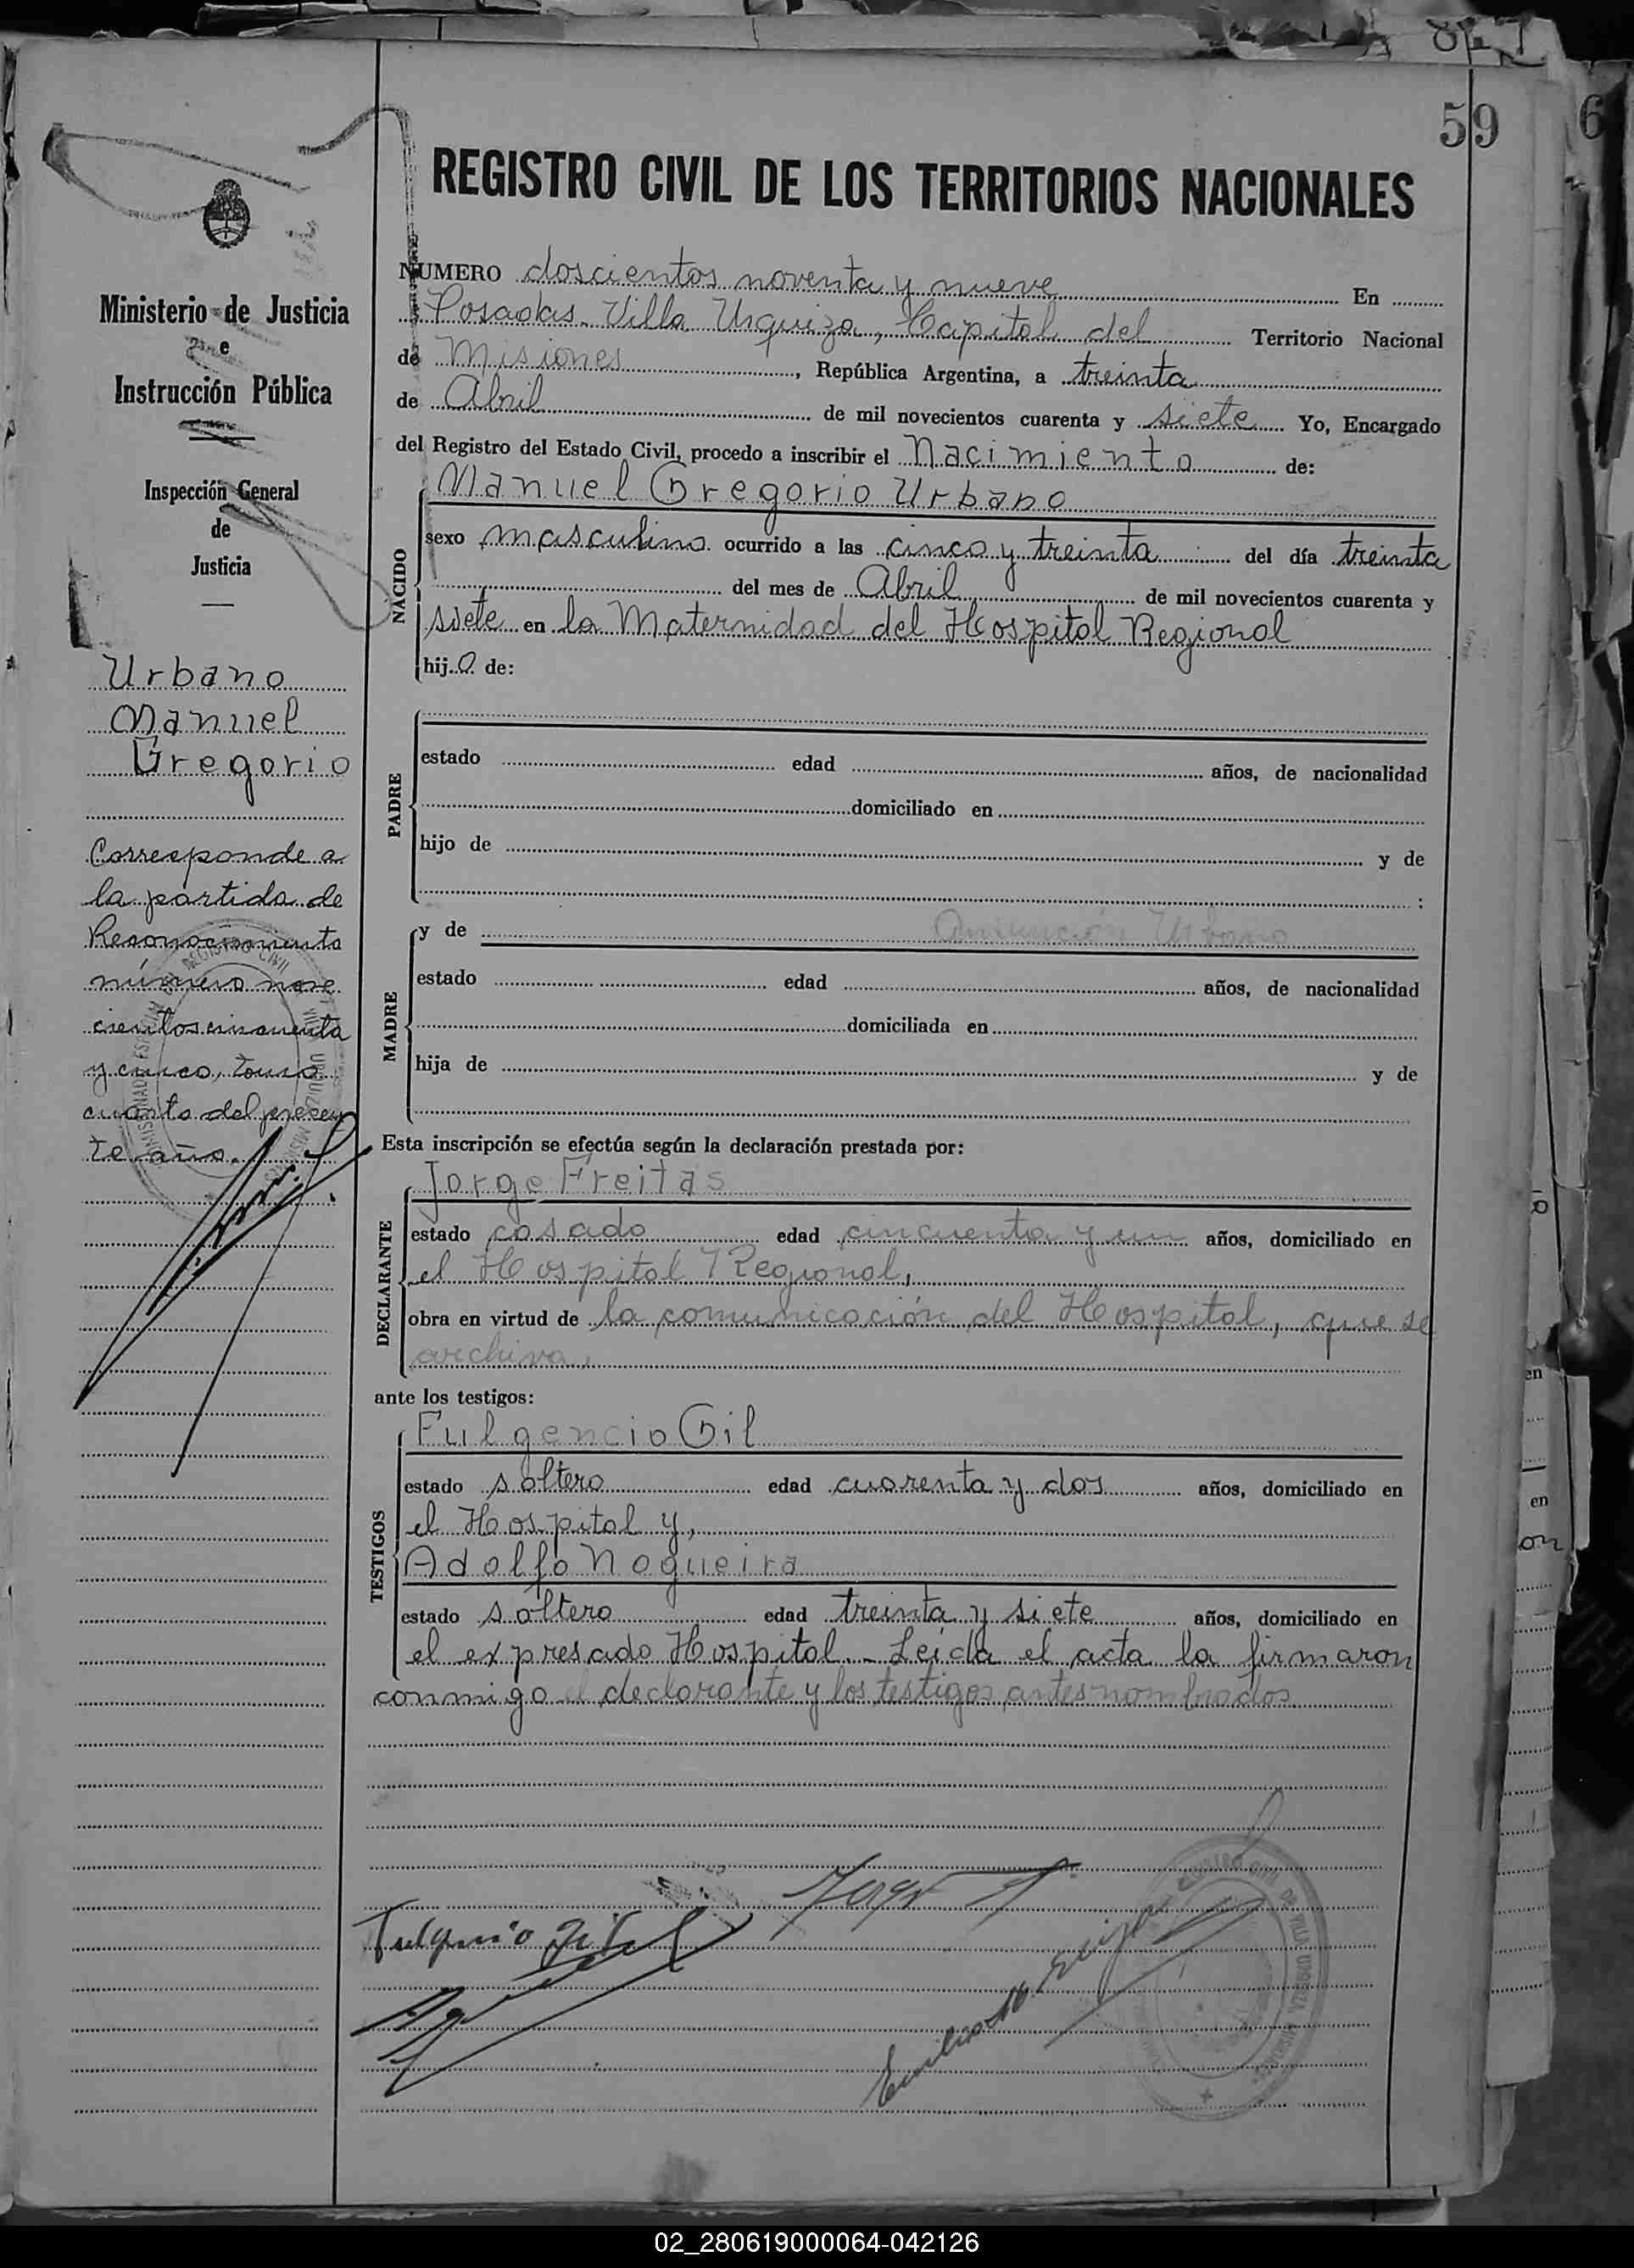 59
REGISTRO CIVIL DE LOS TERRITORIOS NACIONALES
Ministerio de Justicia
e
Instrucción Pública
Inspección General
de
Justicia
Urbano
Manuel
Gregorio
Corresponde a
la partida de
Reconocimiento
número nove
cientos cincuenta
y cinco, tomo
cuarto del presen
te año.
NUMERO doscientos noventa y nueve En
Posadas. Villa Urquiza, Capital del Territorio Nacional
de Misiones, República Argentina, a treinta
de Abril de mil novecientos cuarenta y siete Yo, Encargado
del Registro del Estado Civil, procedo a inscribir el Nacimiento de:
NACIDO
Manuel Gregorio Urbano
sexo masculino ocurrido a las cinco y treinta del día treinta
del mes de Abril de mil novecientos cuarenta y
siete en la Maternidad del Hospital Regional
hijo de:
PADRE
estado edad años, de nacionalidad
domiciliado en
hijo de y de
;
MADRE
y de Urbano
estado edad años, de nacionalidad
domiciliada en
hija de y de
Esta inscripción se efectúa según la declaración prestada por:
DECLARANTE
Jorge Freitas
estado casado edad cincuenta y un años, domiciliado en
el Hospital Regional,
obra en virtud de la comunicación del Hospital, que se
archiva,
ante los testigos:
TESTIGOS
Fulgencio Gil
estado soltero edad cuarenta y dos años, domiciliado en
el Hospital y,
Adolfo Nogueira
estado soltero edad treinta y siete años, domiciliado en
el expresado Hospital.- Leída el acta la firmaron
conmigo el declarante y los testigos antes nombrados
Fulgencio Gil
02_280619000064-042126